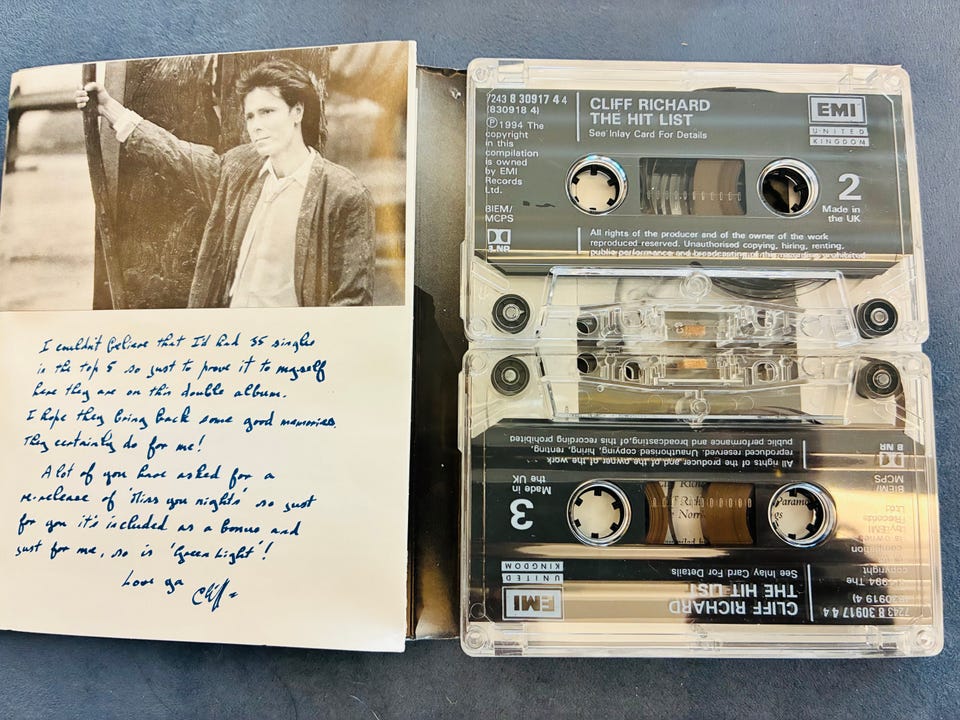 I couldn't believe that I'd had 35 singles
in the top 5 so just to prove it to myself
here they are on this double album.
I hope they bring back some good memories.
They certainly do for me!
A lot of you have asked for a
re-release of 'Miss you nights' so just
for you it's included as a bonus and
just for me, so is 'Green Light'!
Love ya
Cliff
7243 8 30917 4 4
(830918 4)
Ⓟ 1994 The
copyright
in this
compilation
is owned
by EMI
Records
Ltd.
BIEM/
MCPS
B NR
CLIFF RICHARD
THE HIT LIST
See Inlay Card For Details
EMI
UNITED
KINGDOM
2
Made in
the UK
All rights of the producer and of the owner of the work
reproduced reserved. Unauthorised copying, hiring, renting,
public performance and broadcasting of this recording prohibited
7243 8 30917 4 4
(830919 4)
1994 The
copyright
compilation
is owned
by EMI
Records
Ltd.
BIEM/
MCPS
B NR
CLIFF RICHARD
THE HIT LIST
See Inlay Card For Details
EMI
UNITED
KINGDOM
3
Made in
the UK
All rights of the producer and of the owner of the work
reproduced reserved. Unauthorised copying, hiring, renting,
public performance and broadcasting of this recording prohibited